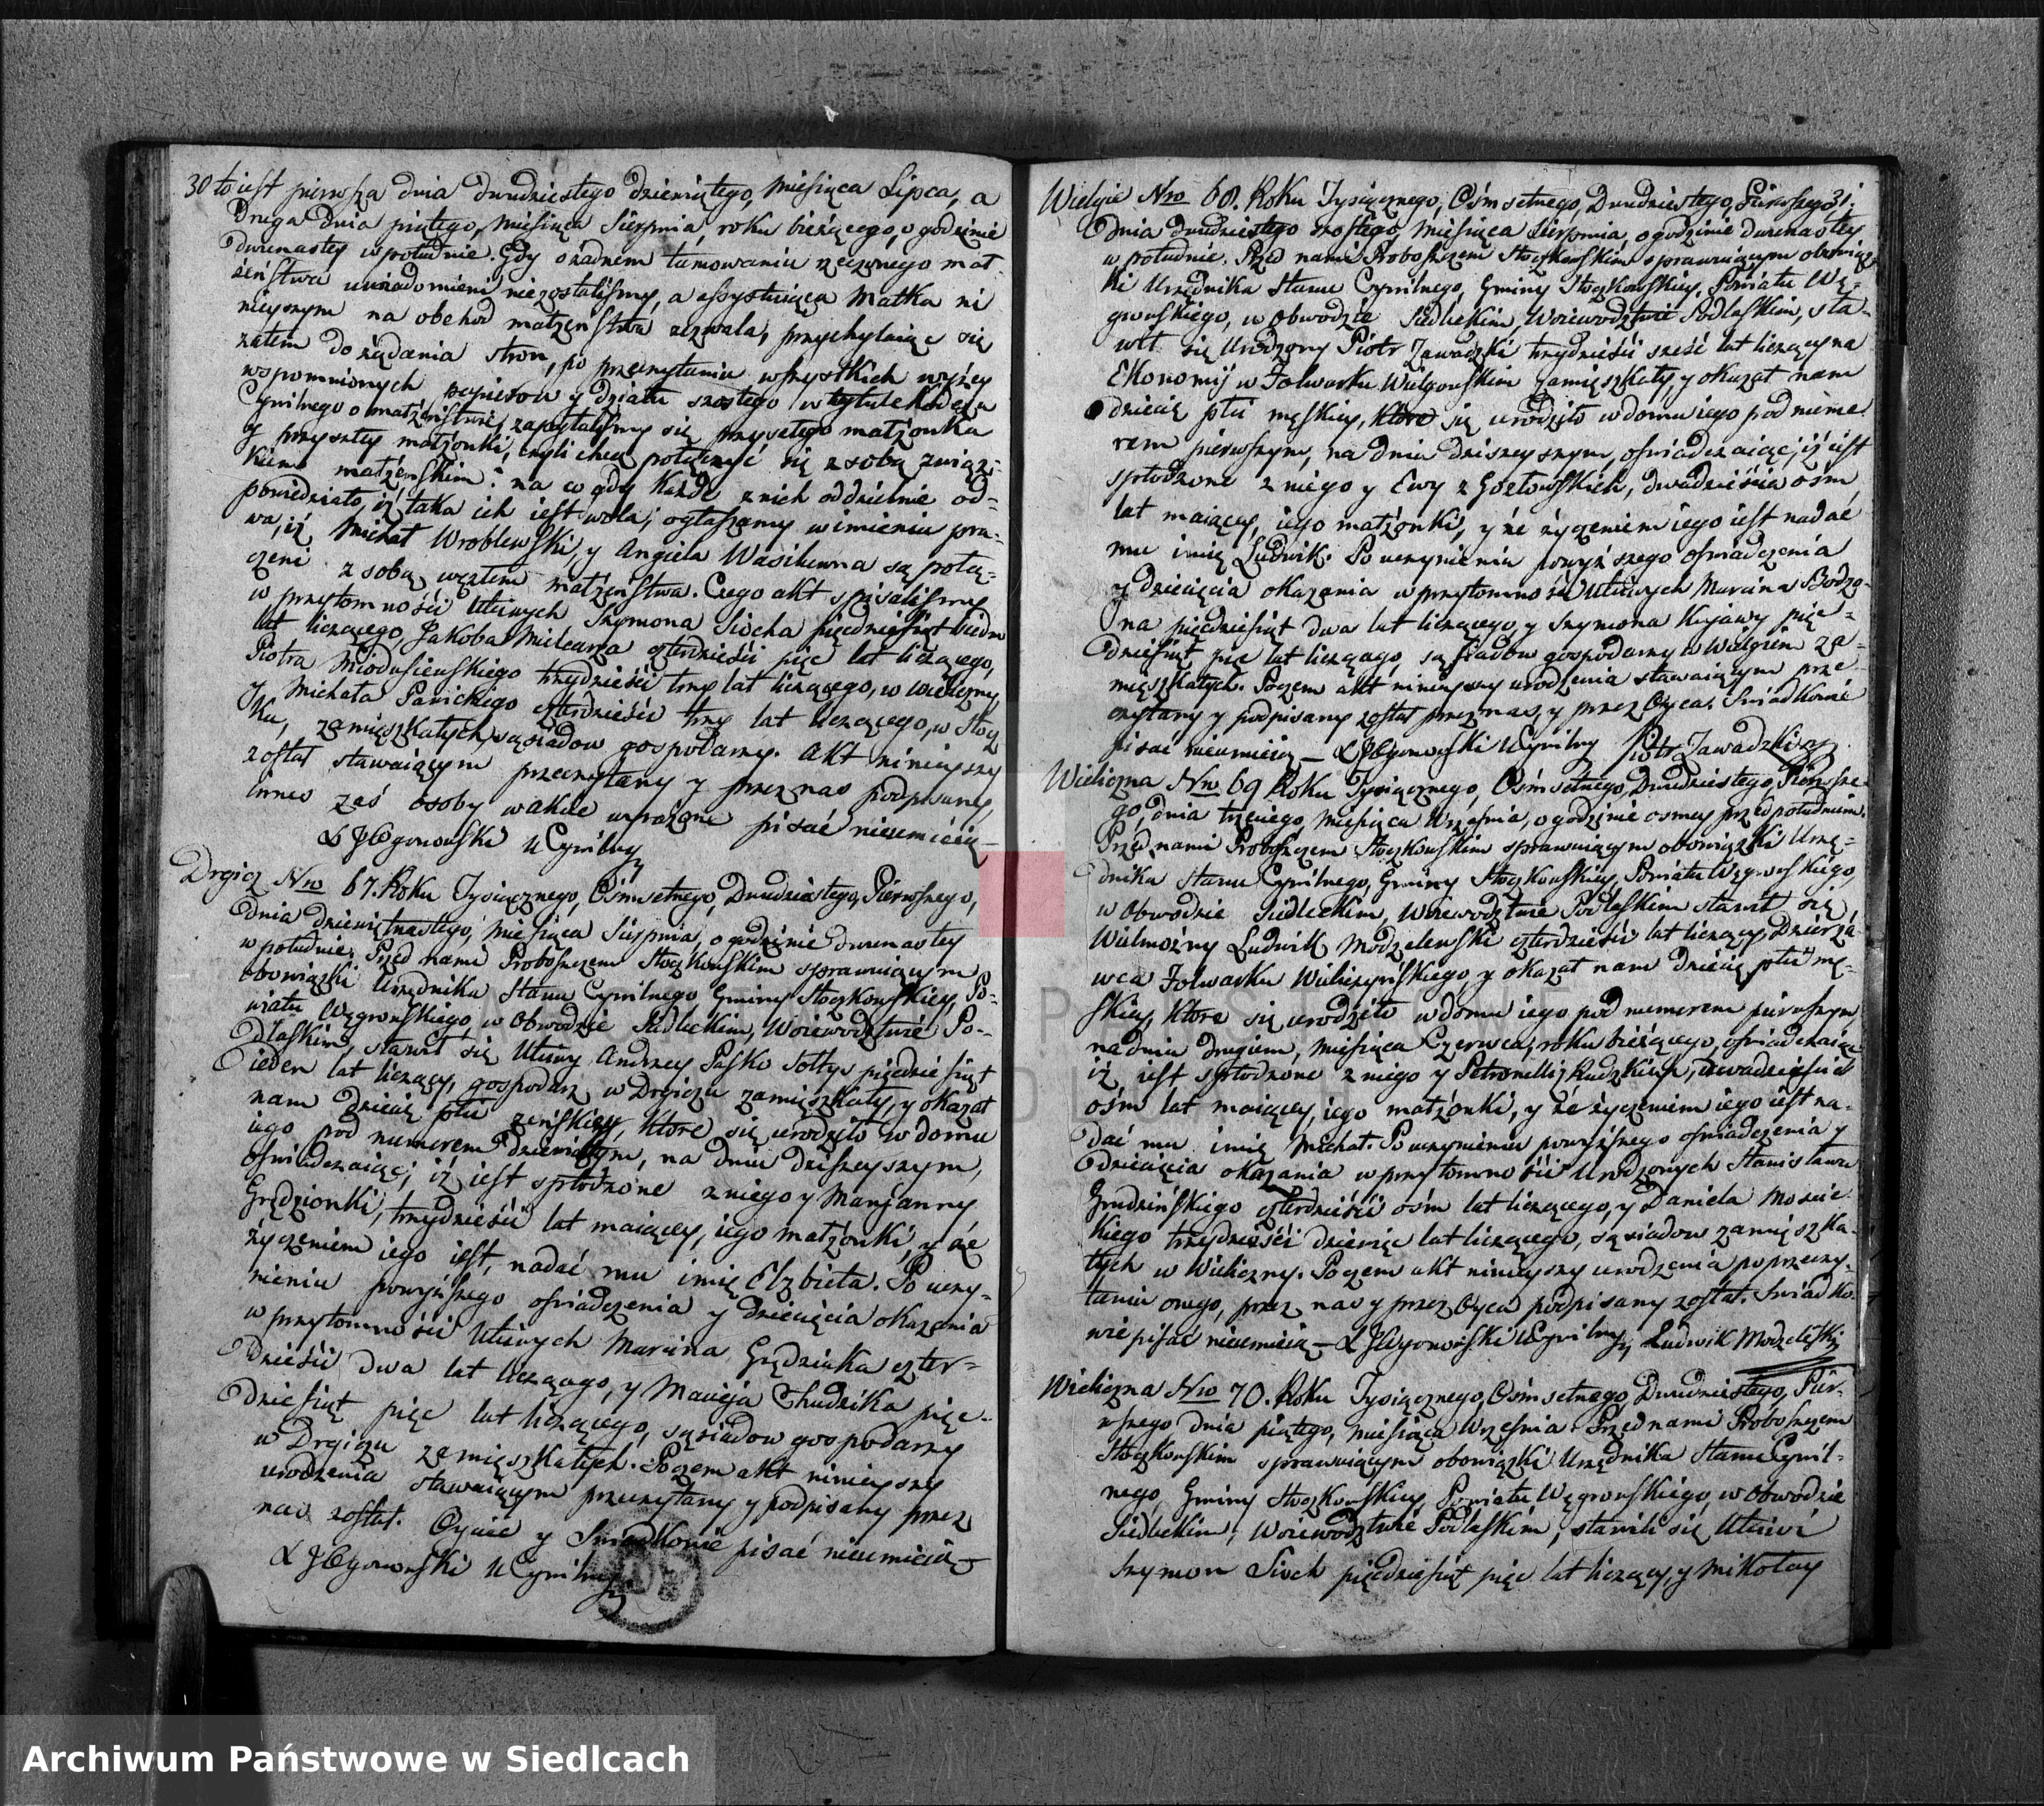 30 to iest pierwsza dnia dwudziestego dziewiątego, miesiąca Lipca, a
Druga dnia piątego, miesiąca Sierpnia, roku bieżącego, o godzinie
dwunastey w południe. Gdy o żadnem tamowaniu rzeczonego mał
żeństwa uwiadomieni niezostaliśmy, a assystuiąca Matka ni
nieyszym na obchod małżeństwa zezwala, przychylaiąc się
zatem do żądania stron, po przeczytaniu wszystkich wyżey
wspomnionych papierow y działu szostego w tytule Kodexu
Cywilnego o małżeństwie, zapytaliśmy się przyszłego małżonka
y przyszłey małżonki, czyli chcą połączyć się z sobą związ-
kiem małżeńskim? na co gdy każde z nich oddzielnie od-
powiedziało, iż taka ich iest wola; ogłaszamy w imieniu pra-
wa, iż Michał Wroblewski, y Angiela Wasilewna są połą-
czeni z sobą węzłem małżeństwa. Czego akt spisaliśmy
w przytomności Uczciwych Szymona Siocha pięćdziesiąt siedm
lat liczącego, Jakoba Milczarza czterdzieści pięc lat liczącego,
Piotra Miodusieuskiego trzydzieści trzy lat liczącego, w Wieliczny
y Michała Panickiego czterdzieści trzy lat liczącego, w Stocz
ku, zamięszkałych, sąsiadow gospodarzy. Akt ninieyszy
został stawaiącym przeczytany y przez nas podpisany,
inne zaś osoby wakcie wyrażone pisać nieumieią –
U Cywilny
Drgicz Nro 67. Roku Tysiącznego, Ośmsetnego, Dwudziestego, Pierwszego,
dnia dziewiętnastego, miesiąca Sierpnia, o godzinie dwunastey
w południe. Przed nami Proboszczem Stoczkowskim sprawuiącym
obowiązki Urzędnika Stanu Cywilnego Gminy Stoczkowskiey, Po-
wiatu Węgrowskiego, w Obwodzie Siedleckim, Woiewodztwie Po-
dlaskim, stawił się Uczciwy Andrzey Pasko Sołtys pięćdziesiąt
ieden lat liczący, gospodarz w Drgiczu zamięszkały, y okazał
nam dziecię płci żeńskiey, które się urodziło w domu
iego pod numerem dziewiątym, na dniu dziszeyszym,
oświadczaiąc; iż iest spłodzone z niego y Maryanny
Grędzionki, trzydzieści lat maiącey, iego małżonki, y że
życzeniem iego iest, nadać mu imię Elzbieta. Po uczy-
nieniu powyższego oświadczenia y dziecięcia okazania
w przytomności Uczciwych Marcina Grędziaka czter-
dzieści dwa lat liczącego, y Macieja Chudzika pięć-
dziesiąt pięc lat liczącego, sąsiadow gospodarzy
w Drgiczu zamięszkałych. Poczem akt ninieyszy
urodzenia stawaiącym przeczytany y podpisany przez
nas został. Oyciec y Swiadkowie pisać nieumieią –
U Cywilny
Wielgie Nro 68. Roku Tysiącznego, Ośmsetnego, Dwudziestego, Pierwszego 31.
dnia dwudziestego szostego, miesiąca Sierpnia, o godzinie dwunastey
w południe. Przed nami Proboszczem Stoczkowskim sprawuiącym obowiąz
ki Urzędnika Stanu Cywilnego, Gminy Stoczkowskiey, Powiatu Wę-
growskiego, w Obwodzie Siedleckim, Woiewodztwie Podlaskim, sta-
wił się Urodzony Piotr Zawadzki trzydzieści sześć lat liczący na
Ekonomij w Folwarku Wielgowskim zamięszkały, y okazał nam
dziecię płci męskiey, które się urodziło w domu iego pod nume
rem pierwszym, na dniu dziszeyszym, oświadczaiąc, iż iest
spłodzone z niego y Ewy z Gozłowskich, dwadzieścia ośm
lat maiącey, iego małżonki, y że życzeniem iego iest nadać
mu imię Ludwik. Po uczynieniu powyższego oświadczenia
y dziecięcia okazania w przytomności Uczciwych Marcina Bodzo-
na pięćdziesiąt dwa lat liczącego y Szymona Kujawy pięć-
dziesiąt pięc lat liczącego, sąsiadow gospodarzy w Wielgiem za-
mięszkałych. Poczem akt ninieyszy urodzenia stawaiącym prze-
czytany y podpisany został przez nas, y przez Oyca. Swiadkowie
pisać nieumieią – U Cywilny Piotr Zawadzki
Wieliczna Nro 69 Roku Tysiącznego, Ośmsetnego, Dwudziestego, Pierwsze-
go, dnia trzeciego, miesiąca Września, o godzinie osmey przed południem.
Przed nami Proboszczem Stoczkowskim sprawuiącym obowiązki Urzę-
dnika Stanu Cywilnego, Gminy Stoczkowskiey, Powiatu Węgrowskiego,
w Obwodzie Siedleckim, Woiewodztwie Podlaskim stawił się
Wielmożny Ludwik Modzelewski czterdzieści lat liczący, Dzierża-
wca Folwarku Wieliczyńskiego, y okazał nam dziecię płci mę-
skiey, które się urodziło w domu iego pod numerem pierwszym,
na dniu drugiem, miesiąca Czerwca, roku bieżącego, oświadczaiąc
iż iest spłodzone z niego y Petronelli z Rudzkich, dwadzieścia
ośm lat maiącey, iego małżonki, y że życzeniem iego iest na-
dać mu imię Michał. Po uczynieniu powyższego oświadczenia y
dziecięcia okazania w przytomności Urodzonych Stanisława
Grudzińskiego czterdzieści ośm lat liczącego, y Daniela Moscic-
kiego trzydzieści dziewięc lat liczącego, sąsiadow zamięszka-
łych w Wieliczny. Poczem akt ninieyszy urodzenia po przeczy-
taniu onego, przez nas y przez Oyca podpisany został. Swiadko-
wie pisać nieumieią – U Cywilny Ludwik Modzelewski
Wieliczna Nro 70. Roku Tysiącznego, Ośmsetnego, Dwudziestego, Pier-
wszego dnia piątego, miesiąca Września. Przed nami Proboszczem
Stoczkowskim sprawuiącym obowiązki Urzędnika Stanu Cywil-
nego, Gminy Stoczkowskiey, Powiatu Węgrowskiego, w Obwodzie
Siedleckim, Woiewodztwie Podlaskim, stawili się Uczciwi
Szymon Sioch pięćdziesiąt pięc lat liczący, y Mikołay
Archiwum Państwowe w Siedlcach